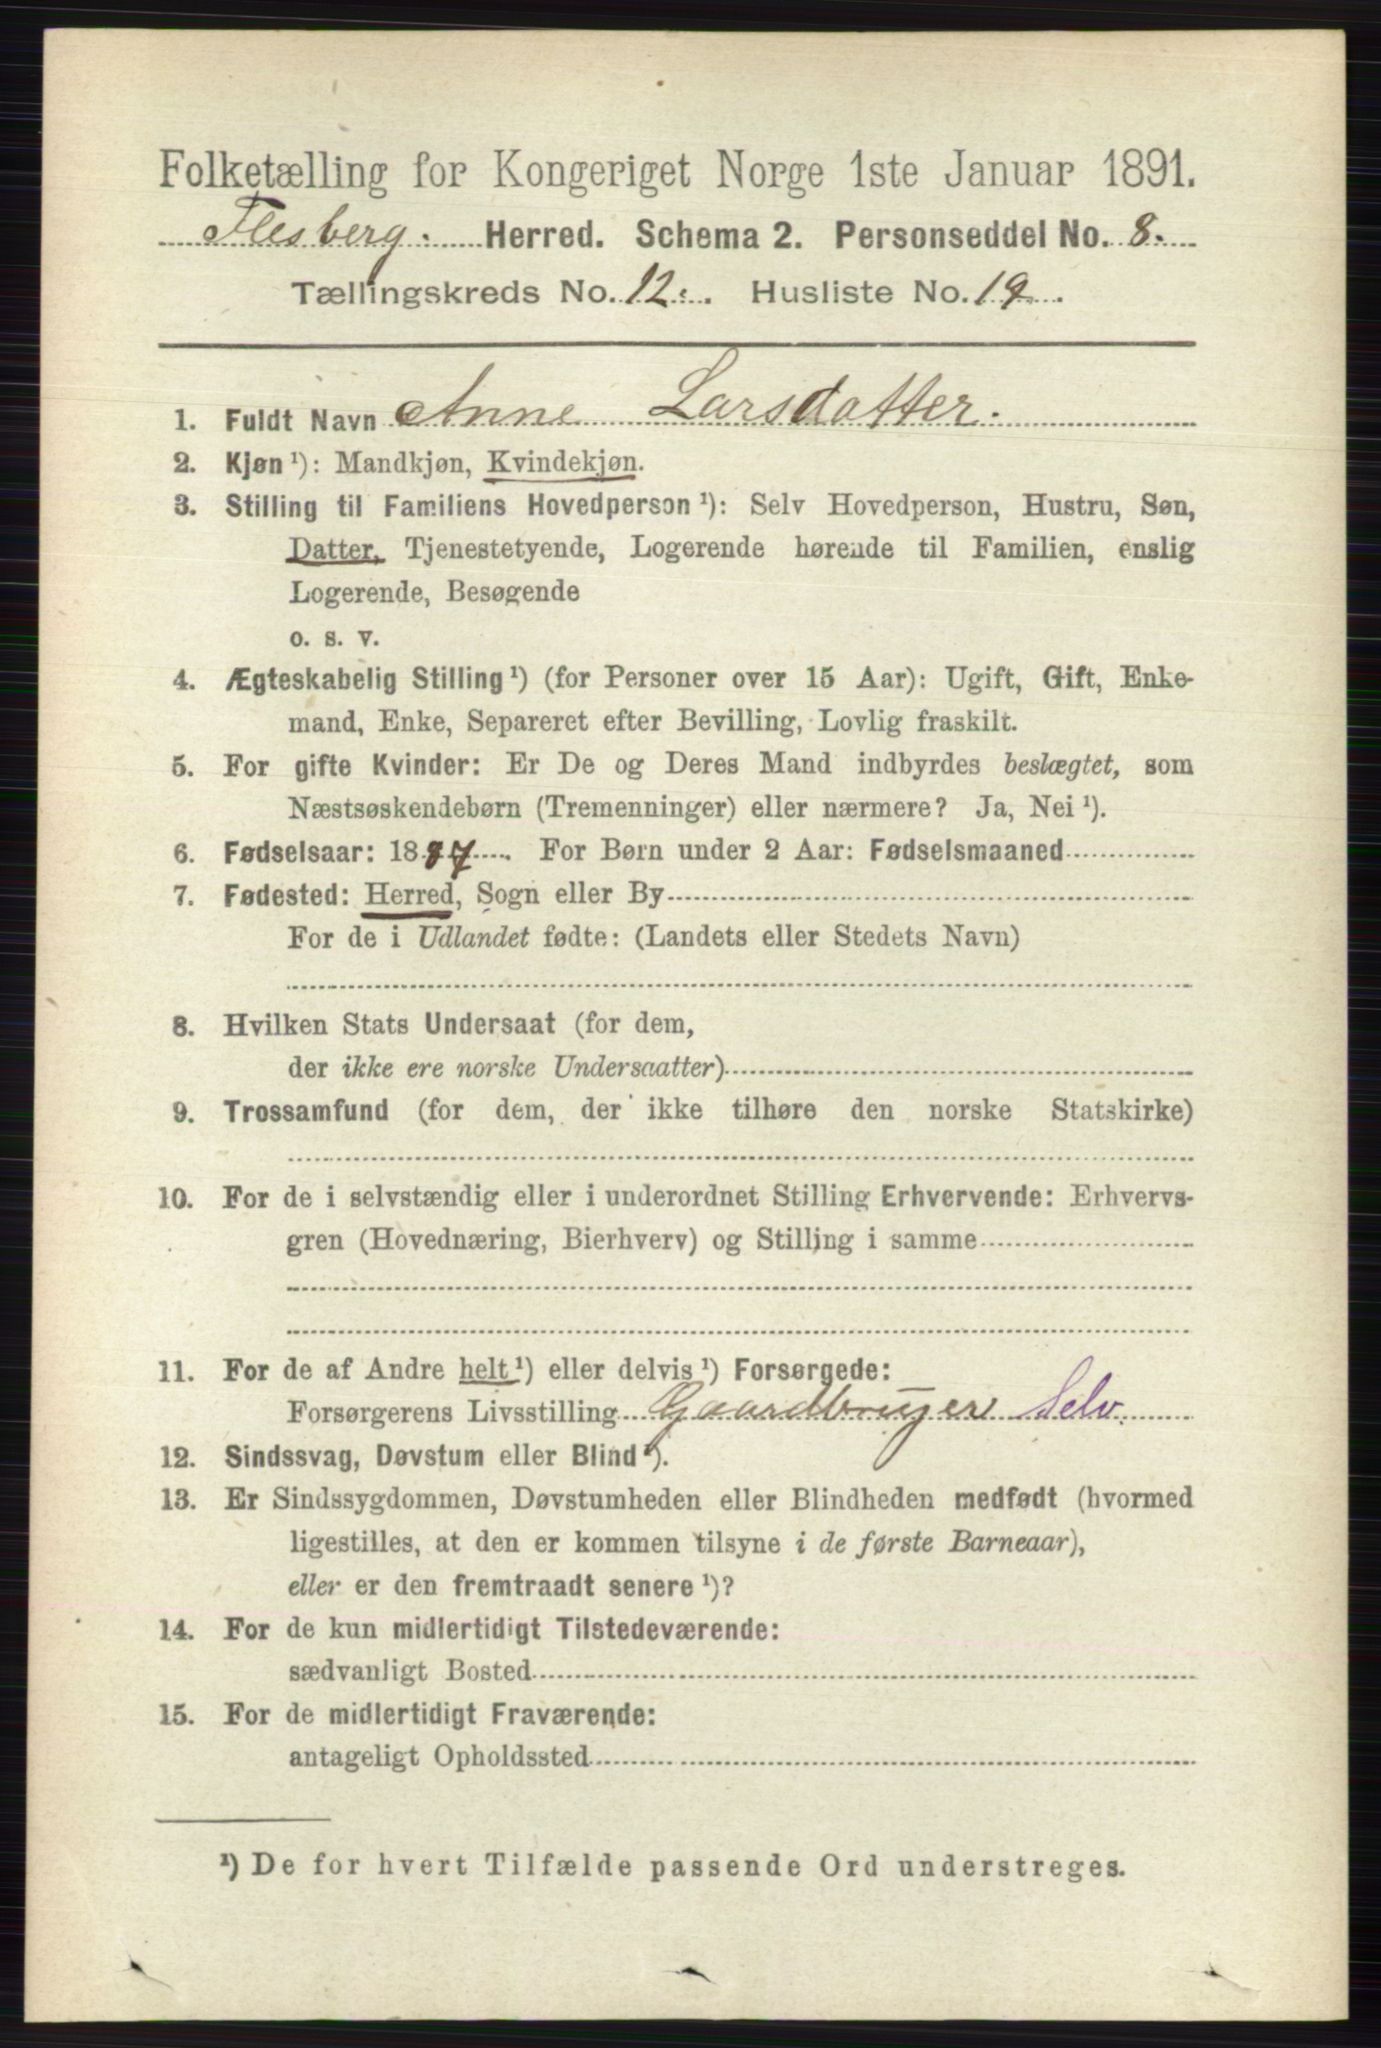 Folketælling for Kongeriget Norge 1ste Januar 1891.
Flesberg. Herred. Schema 2. Personseddel No. 8.
Tællingskreds No. 12. Husliste No. 19.
1. Fuldt Navn Anne Larsdatter.
2. Kjøn ¹): Mandkjøn, Kvindekjøn.
3. Stilling til Familiens Hovedperson ¹): Selv Hovedperson, Hustru, Søn,
Datter, Tjenestetyende, Logerende hørende til Familien, enslig
Logerende, Besøgende
o. s. v.
4. Ægteskabelig Stilling ¹) (for Personer over 15 Aar): Ugift, Gift, Enke-
mand, Enke, Separeret efter Bevilling, Lovlig fraskilt.
5. For gifte Kvinder: Er De og Deres Mand indbyrdes beslægtet, som
Næstsøskendebørn (Tremenninger) eller nærmere? Ja, Nei ¹).
6. Fødselsaar: 1887. For Børn under 2 Aar: Fødselsmaaned
7. Fødested: Herred, Sogn eller By
For de i Udlandet fødte: (Landets eller Stedets Navn)
8. Hvilken Stats Undersaat (for dem,
der ikke ere norske Undersaatter)
9. Trossamfund (for dem, der ikke tilhøre den norske Statskirke)
10. For de i selvstændig eller i underordnet Stilling Erhvervende: Erhvervs-
gren (Hovednæring, Bierhverv) og Stilling i samme
11. For de af Andre helt ¹) eller delvis ¹) Forsørgede:
Forsørgerens Livsstilling Gaardbruger Selv.
12. Sindssvag, Døvstum eller Blind ¹).
13. Er Sindssygdommen, Døvstumheden eller Blindheden medfødt (hvormed
ligestilles, at den er kommen tilsyne i de første Barneaar),
eller er den fremtraadt senere ¹)?
14. For de kun midlertidigt Tilstedeværende:
sædvanligt Bosted
15. For de midlertidigt Fraværende:
antageligt Opholdssted
¹) De for hvert Tilfælde passende Ord understreges.